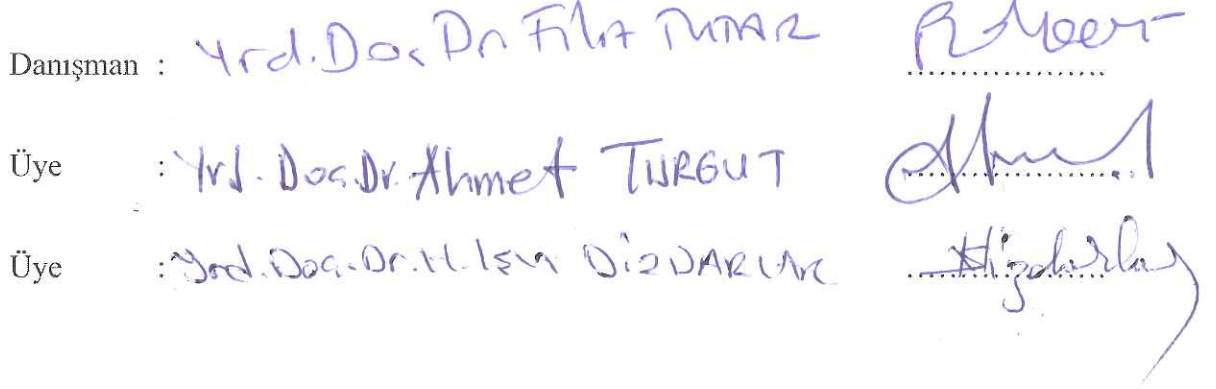 Danışman : Yrd. Doç Dr Filiz TUTAR
Üye : Yrd. Doç. Dr. Ahmet TURGUT
Üye : Yrd. Doç. Dr. H. Işıl DİZDARLAR